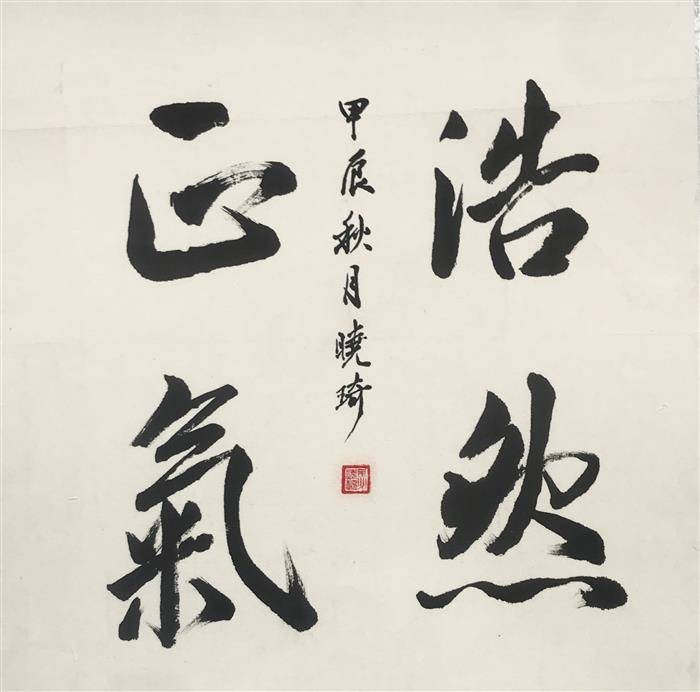 浩然
正氣
甲辰秋月曉琦